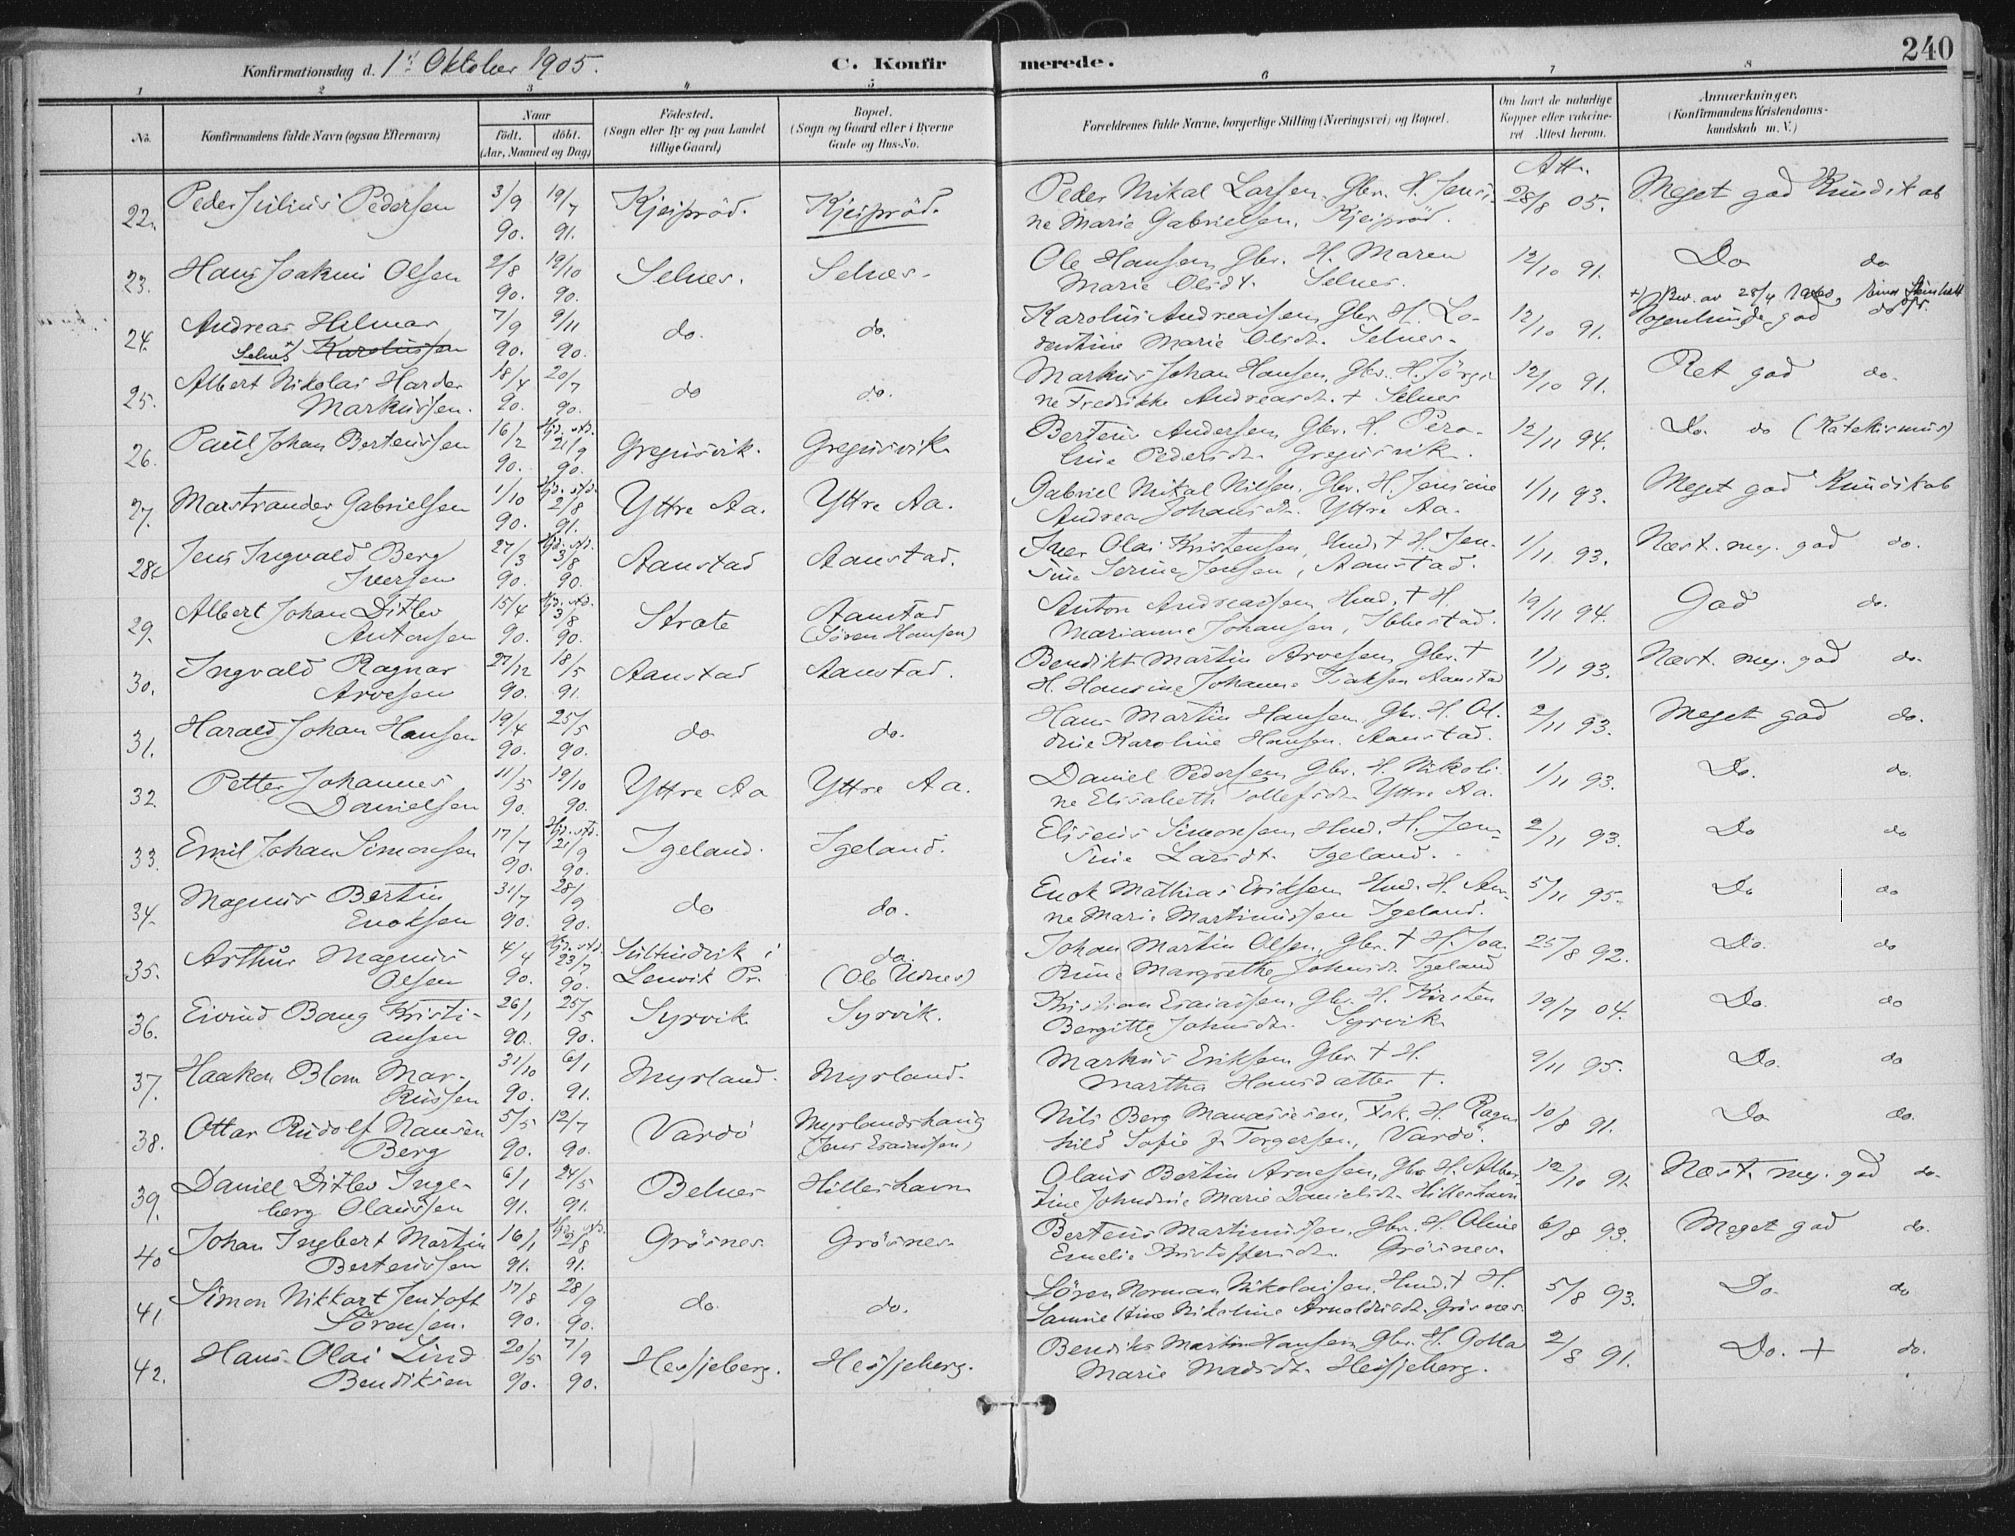 240
Konfirmationsdag d. 1ste Oktober 1905. C. Konfirmerede.
1 2 3 4 5 6 7 8
No. Konfirmandens fulde Navn (ogsaa Efternavn) Naar födt. döbt. (Aar, Maaned og Dag) Födested. (Sogn eller By og paa Landet tillige Gaard) Bopæl. (Sogn og Gaard eller i Byerne Gade og Hus-No. Forældrenes fulde Navne, borgerlige Stilling (Næringsvei) og Bopæl. Om havt de naturlige Kopper eller vaccineret Attest herom. Anmærkninger. (Konfirmandens Kristendomskundskab m. V.)
Att.
22. Peder Julius Pedersen 3/9 90. 19/7 91. Kjeiprød. Kjeiprød. Peder Mikal Larsen, Gbr. H. Jensine Marie Gabrielsen, Kjeiprød. 28/8 05. Meget god Kundskab
23. Hans Joakim Olsen 2/8 90. 19/10 90. Selnes. Selnes. Ole Hansen, Gbr. H. Maren Marie Olsdt. Selnes. 12/10 91. Do do
24. Andreas Hilmar Selnes Karolussen 7/9 90. 9/11 90. do. do. Karolus Andreassen, Gbr. H. Lorentine Marie Olsdt. Selnes. 12/10 91. Nogenlunde god do
25. Albert Nikolai Harder Markussen. 18/4 90. 20/7 90. do do. Markus Johan Hansen, Gbr. H. Jørgine Fredrikke Andreasdt. + Selnes 12/10 91. Ret god do.
26. Paul Johan Berteussen 16/2 90. Hjd. stf. 21/9 90. Gregusvik. Gregusvik Berteus Andersen, Gbr. H. Peroline Pedersdt. Gregusvik. 12/11 94. Do. do (Katekismus)
27. Marstrander Gabrielsen 1/10 90. Hjd. stf. 2/8 91. Yttre Aa. Yttre Aa. Gabriel Mikal Nilsen, Gbr. H. Jensine Andrea Johansdt. Yttre Aa. 1/11 93. Meget god Kundskab
28. Jens Ingvald Berg Iversen 27/3 90. Hjd. stf. 3/8 90. Aanstad Aanstad. Iver Olai Kristensen, Hmd. + H. Jensine Serine Jensen, Aanstad. 1/11 93. Næst. meg. god do.
29. Albert Johan Ditlev Antonsen 15/4 90. Hjd. stf. 3/8 90. Strate Aanstad (Søren Hansen) Anton Andreassen, Hmd. + H. Marianne Johansen, Ibbestad. 19/11 94. God do.
30. Ingvald Ragnar Arvesen 27/12 90. 18/5 91. Aanstad Aanstad. Bendikt Martin Arvesen, Gbr. + H. Hansine Johanne Isaksen Aanstad 1/11 93. Næst. meg. god do.
31. Harald Johan Hansen 19/4 90. 25/5 90. do do. Hans Martin Hansen, Gbr. H. Oldine Karoline Hansen. Aanstad. 2/11 93. Meget god do.
32. Petter Johannes Danielsen 11/5 90. 19/10 90. Yttre Aa Yttre Aa. Daniel Pedersen, Gbr. H. Nikoline Elisabeth Tollefsdt. Yttre Aa. 1/11 93. Do. do
33. Emil Johan Simonsen 17/7 90. Hjd. stf. 21/9 90. Igeland. Igeland. Eliseus Simonsen, Hmd. H. Jensine Larsdt. Igeland. 2/11 93. Do do
34. Magnus Bertin Enoksen 31/7 90. 28/9 90. do do. Enok Mathias Eriksen, Hmd. H. Anne Marie Martinussen Igeland. 5/11 95. Do do
35. Arthur Magnus Olsen 4/4 90. Hjd. stf. 23/7 90. Sultindvik i Lenvik Pr. do. (Ole Udnes) Johan Martin Olsen, Gbr. + H. Joakine Margrethe Johnsdt. Igeland 25/8 92. Do. do
36. Eivind Bang Kristiansen 26/1 90. 25/5 90. Syrvik Syrvik. Kristian Esaiassen, Gbr. H. Kirsten Bergitte Johnsdt. Syrvik 19/7 04. Do. do
37. Haakon Blom Markussen 31/10 90. 6/1 91. Myrland. Myrland. Markus Eriksen, Gbr. + H. Martha Hansdatter +. 9/11 95. Do. do
38. Ottar Rudolf Nansen Berg 5/5 90. 12/7 90. Vardø Myrlandshaug (Jens Esaiassen) Nils Berg Manassesen, Fsk. H. Ragnhild Sofie J. Torgersen, Vardø. 10/8 91. Do do.
39. Daniel Ditlev Ingeberg Olaussen 6/1 91. 24/5 91. Belnes Hilleshavn Olaus Bertin Arnesen, Gbr. H. Albertine Johndine Marie Danielsdt. Hilleshavn 12/10 91. Næst. meg. god do.
40 Johan Ingbert Martin Berteussen 16/1 91. Hjd. stf. 2/8 91. Grøsnes Grøsnes. Berteus Martinussen, Gbr. H. Oline Emelie Kristoffersdt. Grøsnes. 6/8 93. Meget god do.
41 Simon Nikkart Jentoft Sörensen. 17/8 90. 28/9 90. do. do. Søren Norman Nikolaisen, Hmd. + H. Nikoline Arnoldusdt. Grøsnes 5/8 93. Do. do
42. Hans Olai Lind Bendiksen 20/5 90. 7/9 90. Hessjeberg. Hessjeberg. Bendiks Martin Hansen, Gbr. H. Golla Marie Madsdt. Hessjeberg. 2/8 91. Do. + do.